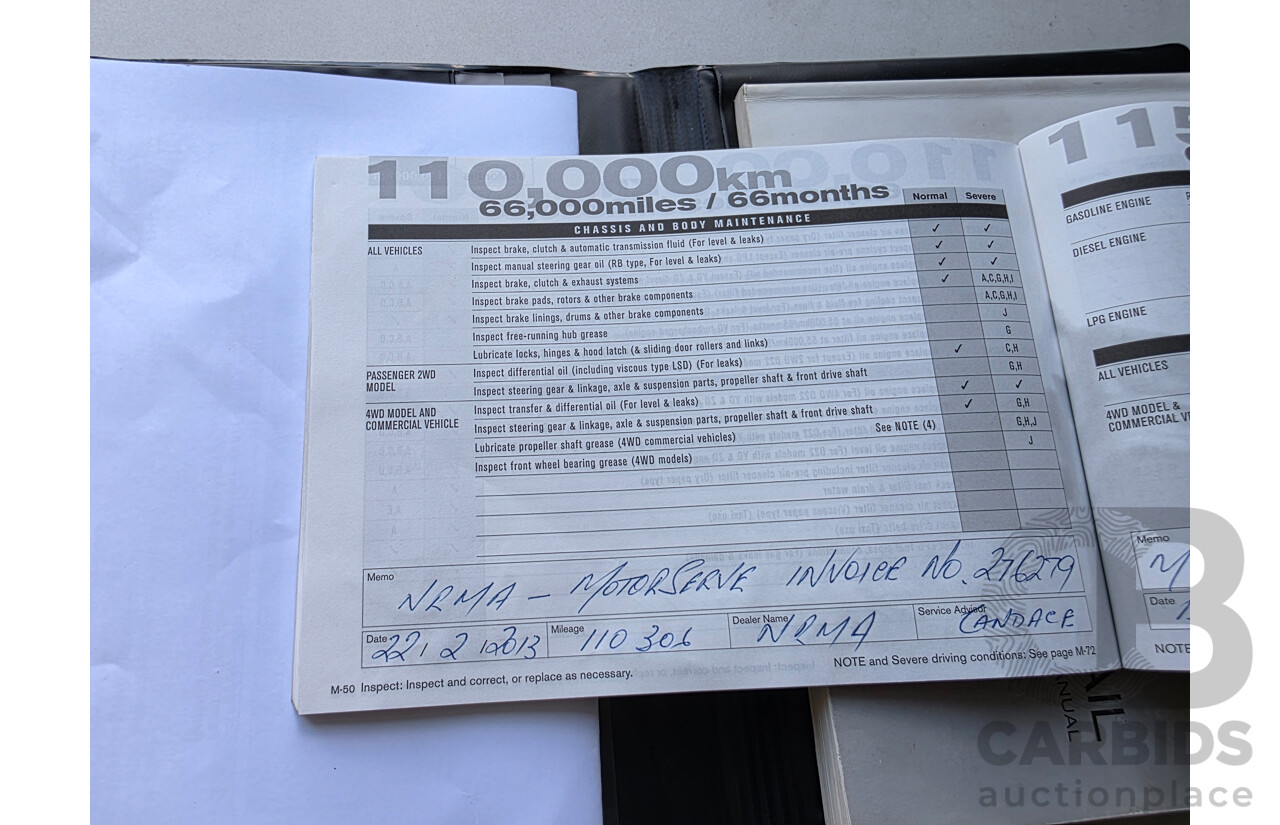 110,000km
66,000miles / 66months
Normal Severe
CHASSIS AND BODY MAINTENANCE
ALL VEHICLES
Inspect brake, clutch & automatic transmission fluid (For level & leaks) ✓ ✓
Inspect manual steering gear oil (RB type, For level & leaks) ✓ ✓
Inspect brake, clutch & exhaust systems ✓ ✓
Inspect brake pads, rotors & other brake components ✓ A,C,G,H,I
Inspect brake linings, drums & other brake components A,C,G,H,I
Inspect free-running hub grease J
Lubricate locks, hinges & hood latch (& sliding door rollers and links) G
PASSENGER 2WD MODEL
Inspect differential oil (including viscous type LSD) (For leaks) ✓ C,H
Inspect steering gear & linkage, axle & suspension parts, propeller shaft & front drive shaft G,H
4WD MODEL AND COMMERCIAL VEHICLE
Inspect transfer & differential oil (For level & leaks) ✓ ✓
Inspect steering gear & linkage, axle & suspension parts, propeller shaft & front drive shaft ✓ G,H
Lubricate propeller shaft grease (4WD commercial vehicles) See NOTE (4) G,H,J
Inspect front wheel bearing grease (4WD models) J
Memo
NRMA - MOTORSERVE INVOICE NO. 276279
Date 22/2/2013 Mileage 110 306 Dealer Name NRMA Service Advisor CANDACE
NOTE and Severe driving conditions: See page M-72
M-50 Inspect: Inspect and correct, or replace as necessary.
115
GASOLINE ENGINE
DIESEL ENGINE
LPG ENGINE
ALL VEHICLES
4WD MODEL &
COMMERCIAL
Memo
Date
NOTE
CARBIDS
auctionplace